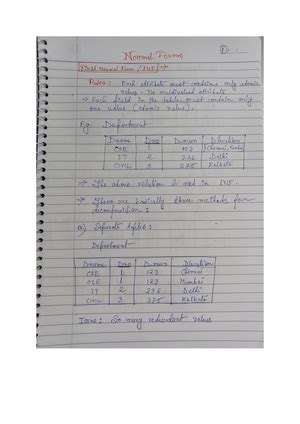 Normal Forms
First Normal Form / 1NF :→
Rules : Each attribute must contains only atomic
value. No multivalued attribute.
→ Each field in the table must contain only
one value (atomic value).
Eg. Department
Dname Dno Dmssn Dlocation
CSE 1 123 (Chennai, Mumbai)
IT 2 236 Delhi
CIVIL 3 375 Kolkata
→ The above relation is not in 1NF.
→ There are basically three methods for
decomposition :
a) Separate tuples :
Department
Dname Dno Dmssn Dlocation
CSE 1 123 Chennai
CSE 1 123 Mumbai
IT 2 236 Delhi
CIVIL 3 375 Kolkata
Issue : So many redundant values